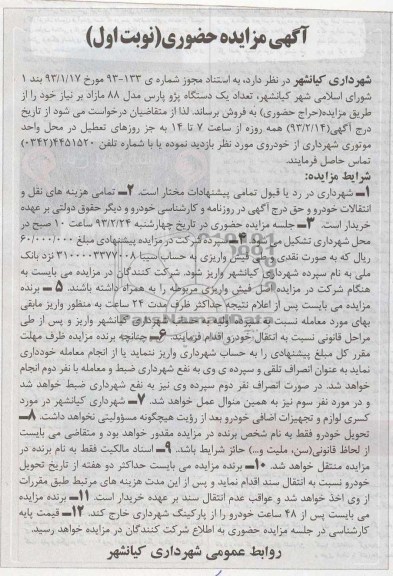 آگهی مزایده حضوری(نوبت اول)
شهرداری کیانشهر در نظر دارد، به استناد مجوز شماره ی ۱۳۳-۹۳ مورخ ۹۳/۱/۱۷ بند ۱
شورای اسلامی شهر کیانشهر، تعداد یک دستگاه پژو پارس مدل ۸۸ مازاد بر نیاز خود را از
طریق مزایده(حراج حضوری) به فروش برساند. لذا از متقاضیان درخواست می شود از تاریخ
درج آگهی(۹۳/۲/۱۴) همه روزه از ساعت ۷ تا ۱۴ به جز روزهای تعطیل در محل واحد
موتوری شهرداری از خودروی مورد نظر بازدید نموده یا با شماره تلفن ۴۴۵۱۵۲۰(۰۳۴۲)
تماس حاصل فرمایند.
شرایط مزایده:
۱ـ شهرداری در رد یا قبول تمامی پیشنهادات مختار است. ۲ـ تمامی هزینه های نقل و
انتقالات خودرو و حق درج آگهی در روزنامه و کارشناسی خودرو و دیگر حقوق دولتی بر عهده
خریدار است. ۳ـ جلسه مزایده حضوری در تاریخ چهارشنبه ۹۳/۲/۲۴ ساعت ۱۰ صبح در
محل شهرداری تشکیل می شود. ۴ـ سپرده شرکت در مزایده پیشنهادی مبلغ ۶۰/۰۰۰/۰۰۰
ریال که به صورت نقدی و طی فیش واریزی به حساب سیبا ۳۱۰۰۰۰۳۳۷۷۰۰۸ نزد بانک
ملی به نام سپرده شهرداری کیانشهر واریز شود. شرکت کنندگان در مزایده می بایست به
هنگام شرکت در مزایده اصل فیش واریزی مربوطه را به همراه داشته باشند. ۵ـ برنده
مزایده می بایست پس از اعلام نتیجه حداکثر ظرف مدت ۲۴ ساعت به منظور واریز مابقی
بهای مورد معامله نسبت به سپرده اولیه به حساب شهرداری کیانشهر واریز و پس از طی
مراحل قانونی نسبت به انتقال خودرو اقدام فرمایند. ۶ـ چنانچه برنده مزایده ظرف مهلت
مقرر کل مبلغ پیشنهادی را به حساب شهرداری واریز ننماید یا از انجام معامله خودداری
نماید به عنوان انصراف تلقی و سپرده ی وی به نفع شهرداری ضبط و معامله با نفر دوم انجام
خواهد شد. در صورت انصراف نفر دوم سپرده وی نیز به نفع شهرداری ضبط خواهد شد
و در مورد نفر سوم نیز به همین منوال عمل خواهد شد. ۷ـ شهرداری کیانشهر در مورد
کسری لوازم و تجهیزات اضافی خودرو بعد از رؤیت هیچگونه مسؤولیتی نخواهد داشت. ۸ـ
تحویل خودرو فقط به نام شخص برنده در مزایده مقدور خواهد بود و متقاضی می بایست
از لحاظ قانونی(سن، ملیت و...) حائز شرایط باشد. ۹ـ اسناد مالکیت فقط به نام برنده در
مزایده منتقل خواهد شد. ۱۰ـ برنده مزایده می بایست حداکثر دو هفته از تاریخ تحویل
خودرو نسبت به انتقال سند اقدام نماید و پس از این مدت هزینه های مرتبط طبق مقررات
از وی اخذ خواهد شد و عواقب عدم انتقال سند بر عهده خریدار است. ۱۱ـ برنده مزایده
می بایست پس از ۴۸ ساعت خودرو را از پارکینگ شهرداری خارج کند. ۱۲ـ قیمت پایه
کارشناسی در جلسه مزایده حضوری به اطلاع شرکت کنندگان در مزایده خواهد رسید.
روابط عمومی شهرداری کیانشهر